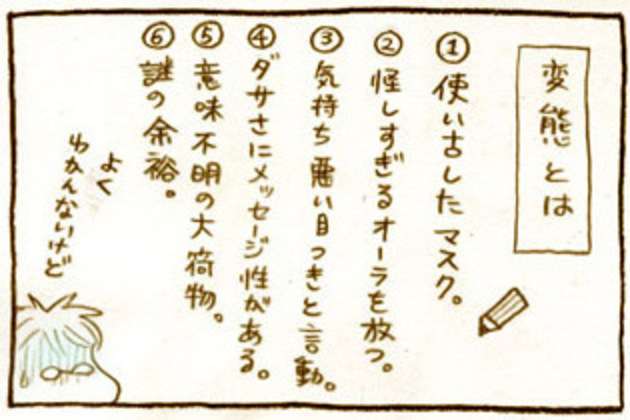 変態とは
①使い古したマスク。
②怪しすぎるオーラを放つ。
③気持ち悪い目つきと言動。
④ダサさにメッセージ性がある。
⑤意味不明の大荷物。
⑥謎の余裕。
よく
わかんないけど